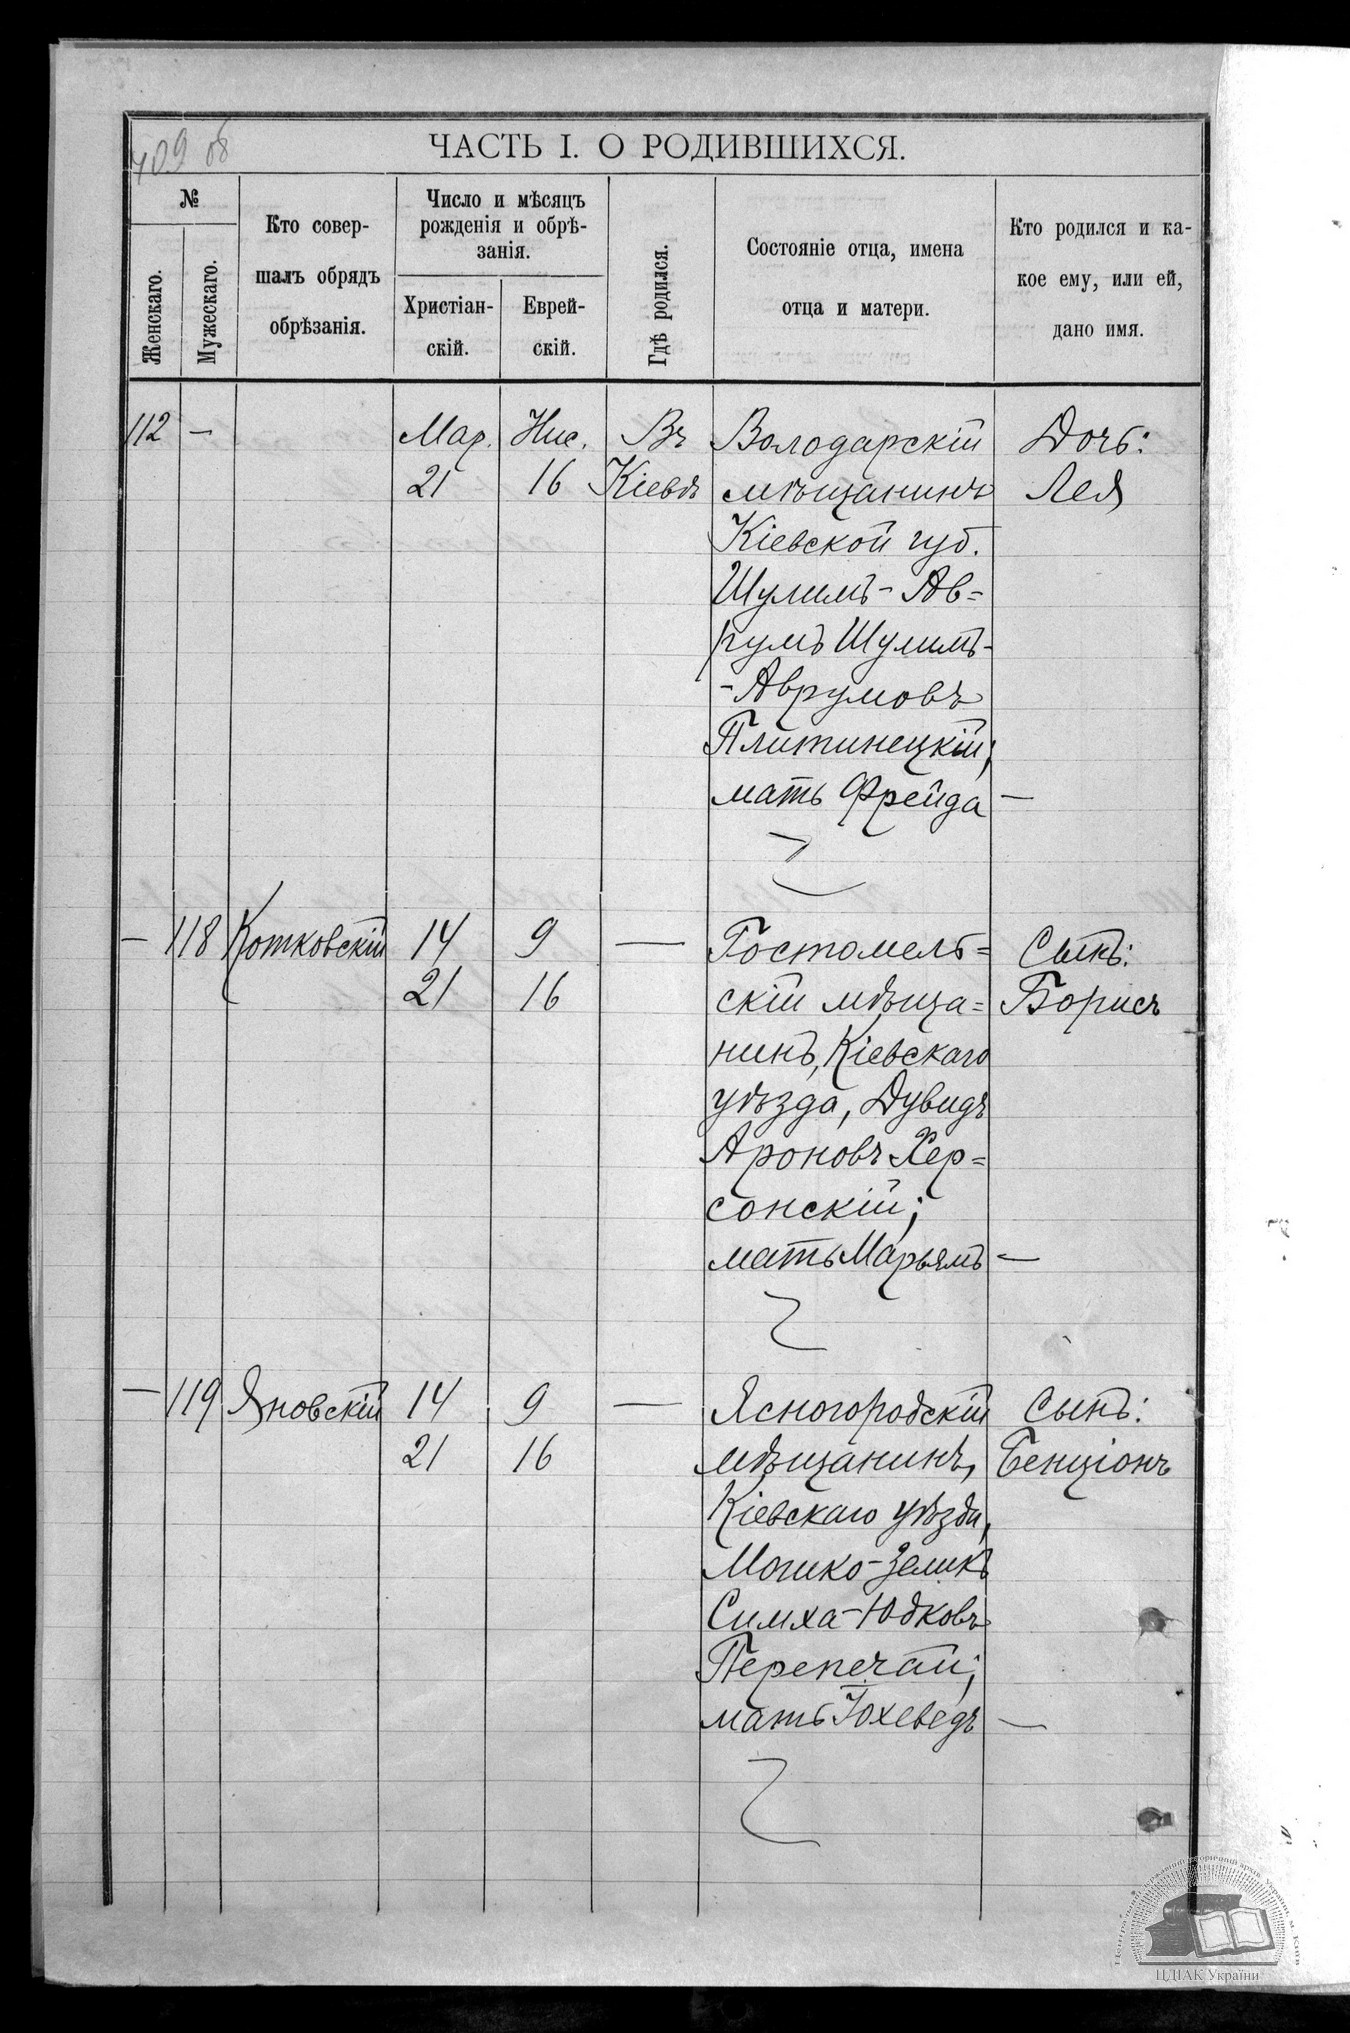 409 об
ЧАСТЬ I. О РОДИВШИХСЯ.
№
Женскаго.
Мужескаго.
Кто совер-
шалъ обрядъ
обрѣзанія.
Число и мѣсяцъ
рожденія и обрѣ-
занія.
Христіан-
скій.
Еврей-
скій.
Гдѣ родился.
Состояніе отца, имена
отца и матери.
Кто родился и ка-
кое ему, или ей,
дано имя.
112 — Мар. Нис. Въ Володарскій Дочь:
21 16 Кіевѣ мѣщанинъ Лея
Кіевской губ.
Шулимъ-Ав=
румъ Шулимъ-
-Аврумовъ
Плитинецкій;
мать Фрейда —
— 118 Котковскій 14 9 — Гостомель= Сынъ:
21 16 скій мѣща= Борисъ
нинъ, Кіевскаго
уѣзда, Дувидъ
Ароновъ Хер=
сонскій;
мать Марьямъ —
— 119 Яновскій 14 9 — Ясногородскій Сынъ:
21 16 мѣщанинъ, Бенціонъ
Кіевскаго уѣзда,
Мошко-Зеликъ
Симха-Юдковъ
Перепечай;
мать Іохеведъ —
ЦДІАК України